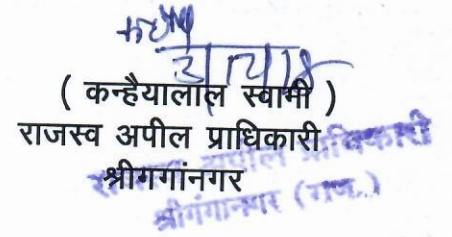 ( कन्हैयालाल स्वामी )
राजस्व अपील प्राधिकारी
श्रीगगांनगर
अपील प्राधिकारी
श्रीगंगानगर (राज.)